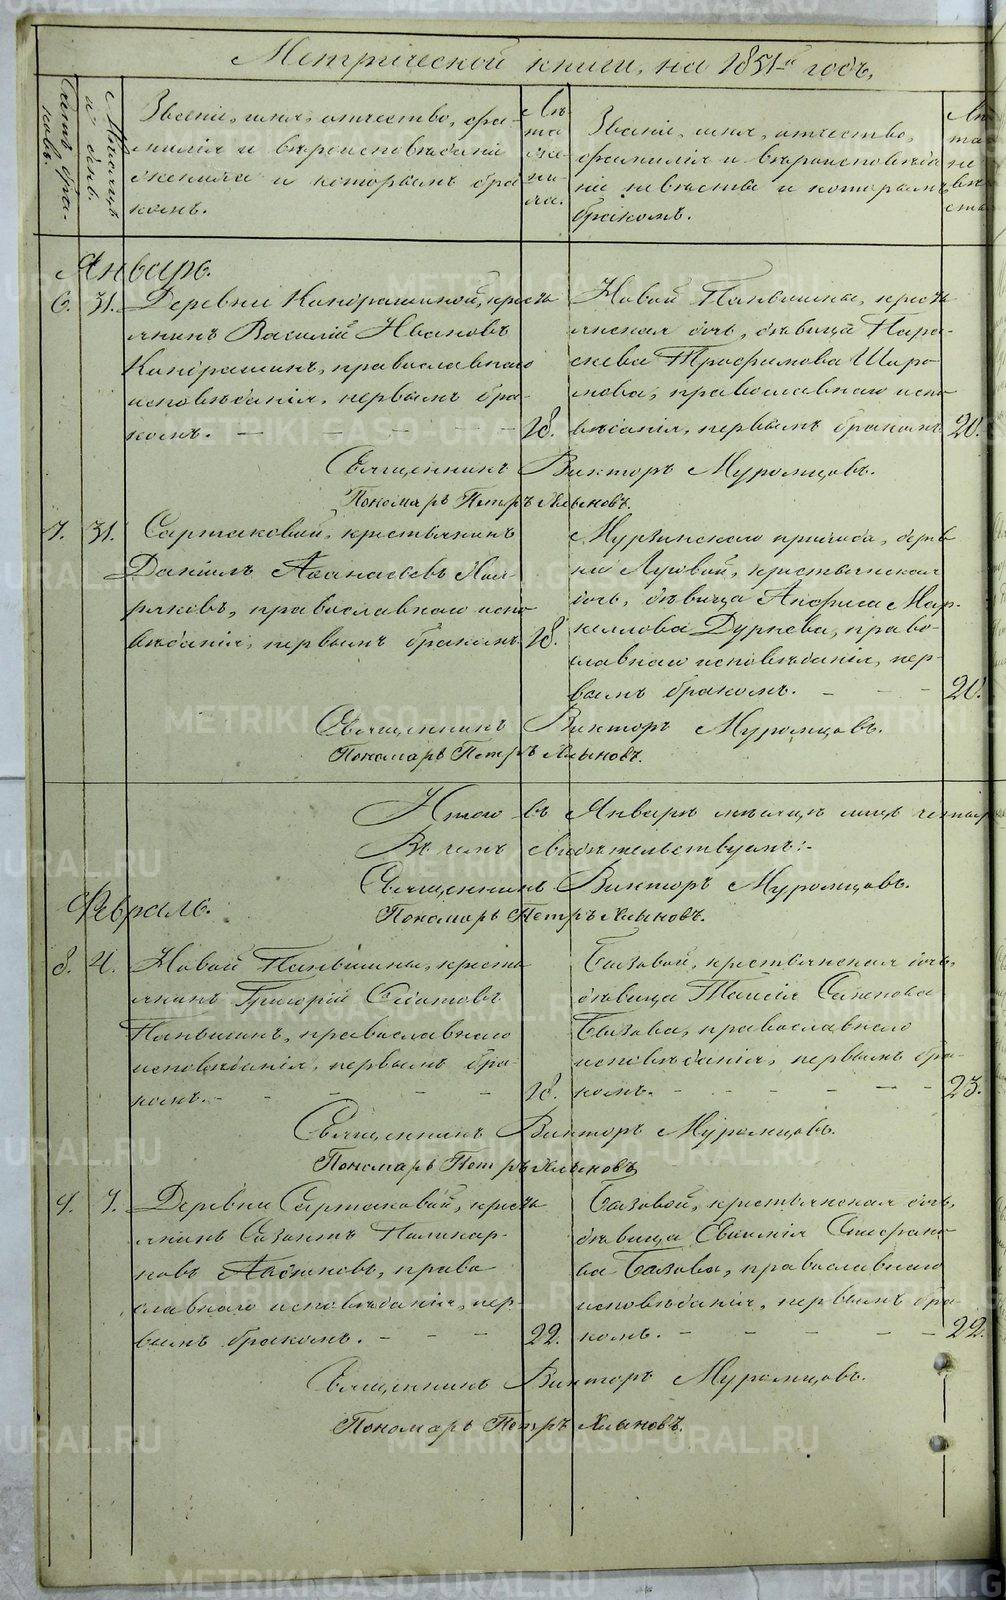 Метрической книги, на 1851й годъ,
Счетъ бра-
ковъ.
Мѣсяцъ
и день.
Званіе, имя, отчество, фа-
милія и вѣроисповѣданіе
жениха и которымъ бра
комъ.
Лѣ
та
же-
ни-
ха.
Званіе, имя, отчество,
фамилія и вѣроисповѣда
ніе невѣсты и которымъ
бракомъ.
Лѣ
та
не
вѣ
сты
Январь.
6. 31. Деревни Кондрашиной, кресть
янинъ Василій Ивановъ
Кондрашинъ, православнаго
исповѣданія, первымъ бра-
комъ. 18.
Новой Паньшины, кресть
янская дочь, дѣвица Пара-
скева Трофимова Широ
кова, православнаго испо
вѣданія, первымъ бракомъ 20.
Священникъ Викторъ Муромцовъ.
Пономарь Петръ Хлыновъ.
7. 31. Сартаковой, крестьянинъ
Даніилъ Аѳанасьевъ
православнаго испо
вѣданія, первымъ бракомъ 18.
Мурзинскаго прихода, дерев
ни Луговой, крестьянская
дочь, дѣвица Анфиса Мар-
келлова Дурнева, право-
славнаго исповѣданія, пер-
вымъ бракомъ. 20.
Священникъ Викторъ Муромцовъ.
Пономарь Петръ Хлыновъ.
Итого въ Январѣ мѣсяцѣ
Въ чемъ свидѣтельствуемъ:-
Священникъ Викторъ Муромцовъ.
Пономарь Петръ Хлыновъ.
Февраль.
8. 4. Новой Паньшины, кресть
янинъ Григорій Савватовъ
Паньшинъ, православнаго
исповѣданія, первымъ бра-
комъ. 18.
Бызовой, крестьянская дочь,
дѣвица Таисія Семенова
Бызова, православнаго
исповѣданія, первымъ бра-
комъ. 23.
Священникъ Викторъ Муромцовъ.
Пономарь Петръ Хлыновъ
9. 7. Деревни Сартаковой, кресть
янинъ Созонтъ Поликар-
повъ право
славнаго исповѣданія, пер
вымъ бракомъ. 22.
Бызовой, крестьянская дочь,
дѣвица Евѳимія Стефано
ва Бызова, православнаго
исповѣданія, первымъ бра-
комъ. 22.
Священникъ Викторъ Муромцовъ.
Пономарь Петръ Хлыновъ.
METRIKI.GASO-URAL.RU